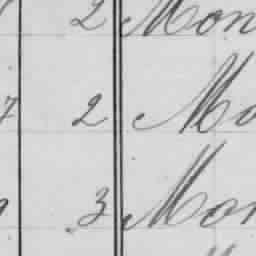 2 Mon
7 2 Mo
3 Mon